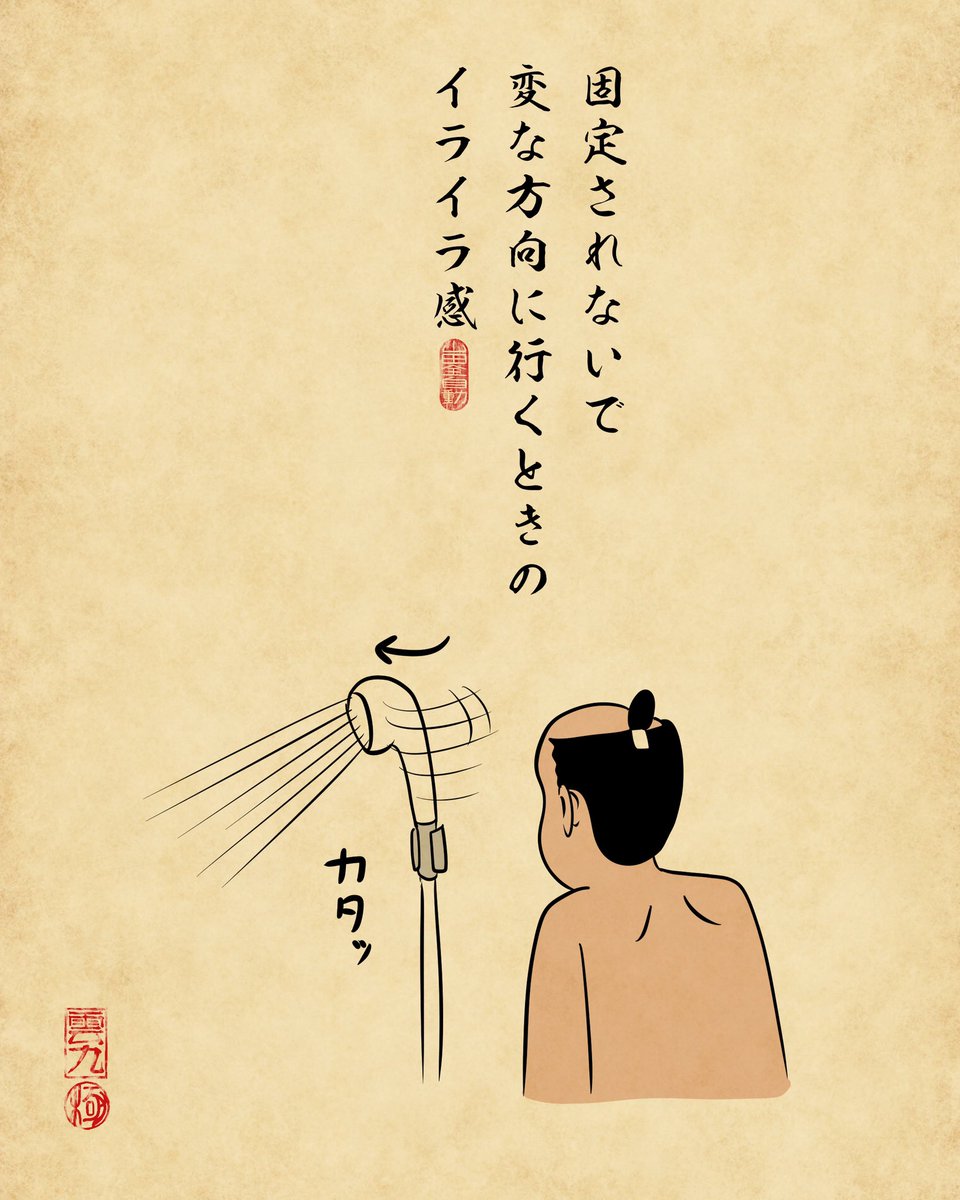 固定されないで
変な方向に行くときの
イライラ感
カタッ